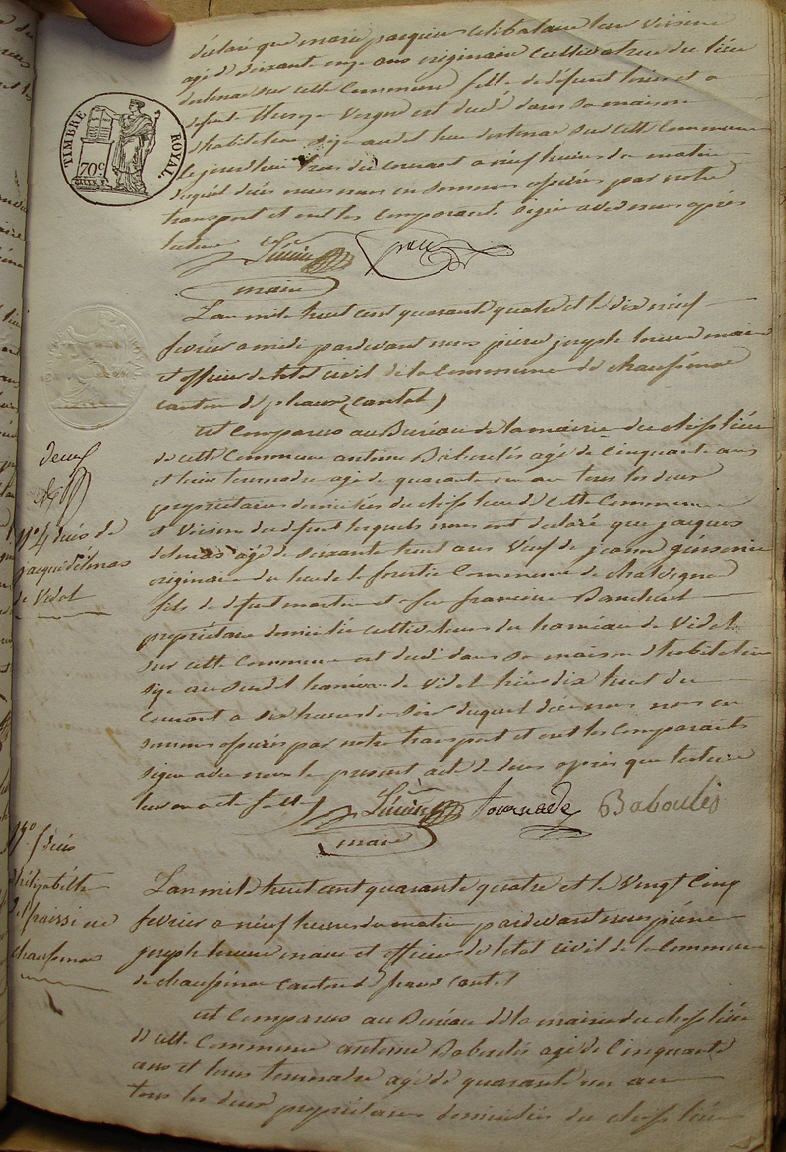 déclaré que marie jacquier célibataire leur voisine
agé de soixante onze ans originaire cultivatrice du lieu
delmas sur cette Commune fille de défunt louis et a
défunte Vergne est décédé dans sa maison
d'habitation sige audit lieu delmas sur cette Commune
le jourdhui trois du courant a neuf heures du matin
duquel décès nous nous en sommes assurés par notre
transport et ont les Comparant signé avec nous après
lecture
maire
TIMBRE ROYAL
70c
L'an mil huit cent quarante quatre et le dix neuf
fevrier a midi pardevant nous pierre joseph maire
et officier de l'etat civil de la Commune de chaussenac
canton de pleaux (cantal)
est Comparus au Bureau de la mairie du chef lieu
de cette Commune antoine Baboulès agé de Cinquante ans
et louis tournadre agé de quarante un ans tous les deux
propriétaires domiciliés du chef lieu de cette Commune
et Voisin du défunt lesquels nous ont déclaré que jacques
delmas agé de soixante huit ans Veuf de jeanne
originaire du lieu de Commune de chalvignac
fils de défunt martin et feu françoise
propriétaire domicilié cultivateur du hameau de Videt
sur cette Commune est décédé dans sa maison d'habitation
sige au susdit hameau de Videt hier dix huit du
Courant a six heures du soir duquel décès nous nous en
sommes assurés par notre transport et ont les Comparants
signé avec nous le present acte de deces après que lecture
leur en a été faite
tournadre Baboulès
maire
n°4 décès de
jacques delmas
de Videt
L'an mil huit cent quarante quatre et le Vingt Cinq
fevrier a neuf heures du matin pardevant nous pierre
joseph maire et officier de l'etat civil de la Commune
de chaussenac canton de pleaux cantal
est Comparus au Bureau de la mairie du chef lieu
de cette Commune antoine Baboulès agé de Cinquante
ans et louis tournadre agé de quarante un ans
tous les deux propriétaires domiciliés du chef lieu
décès
d'élizabeth
chaussenac